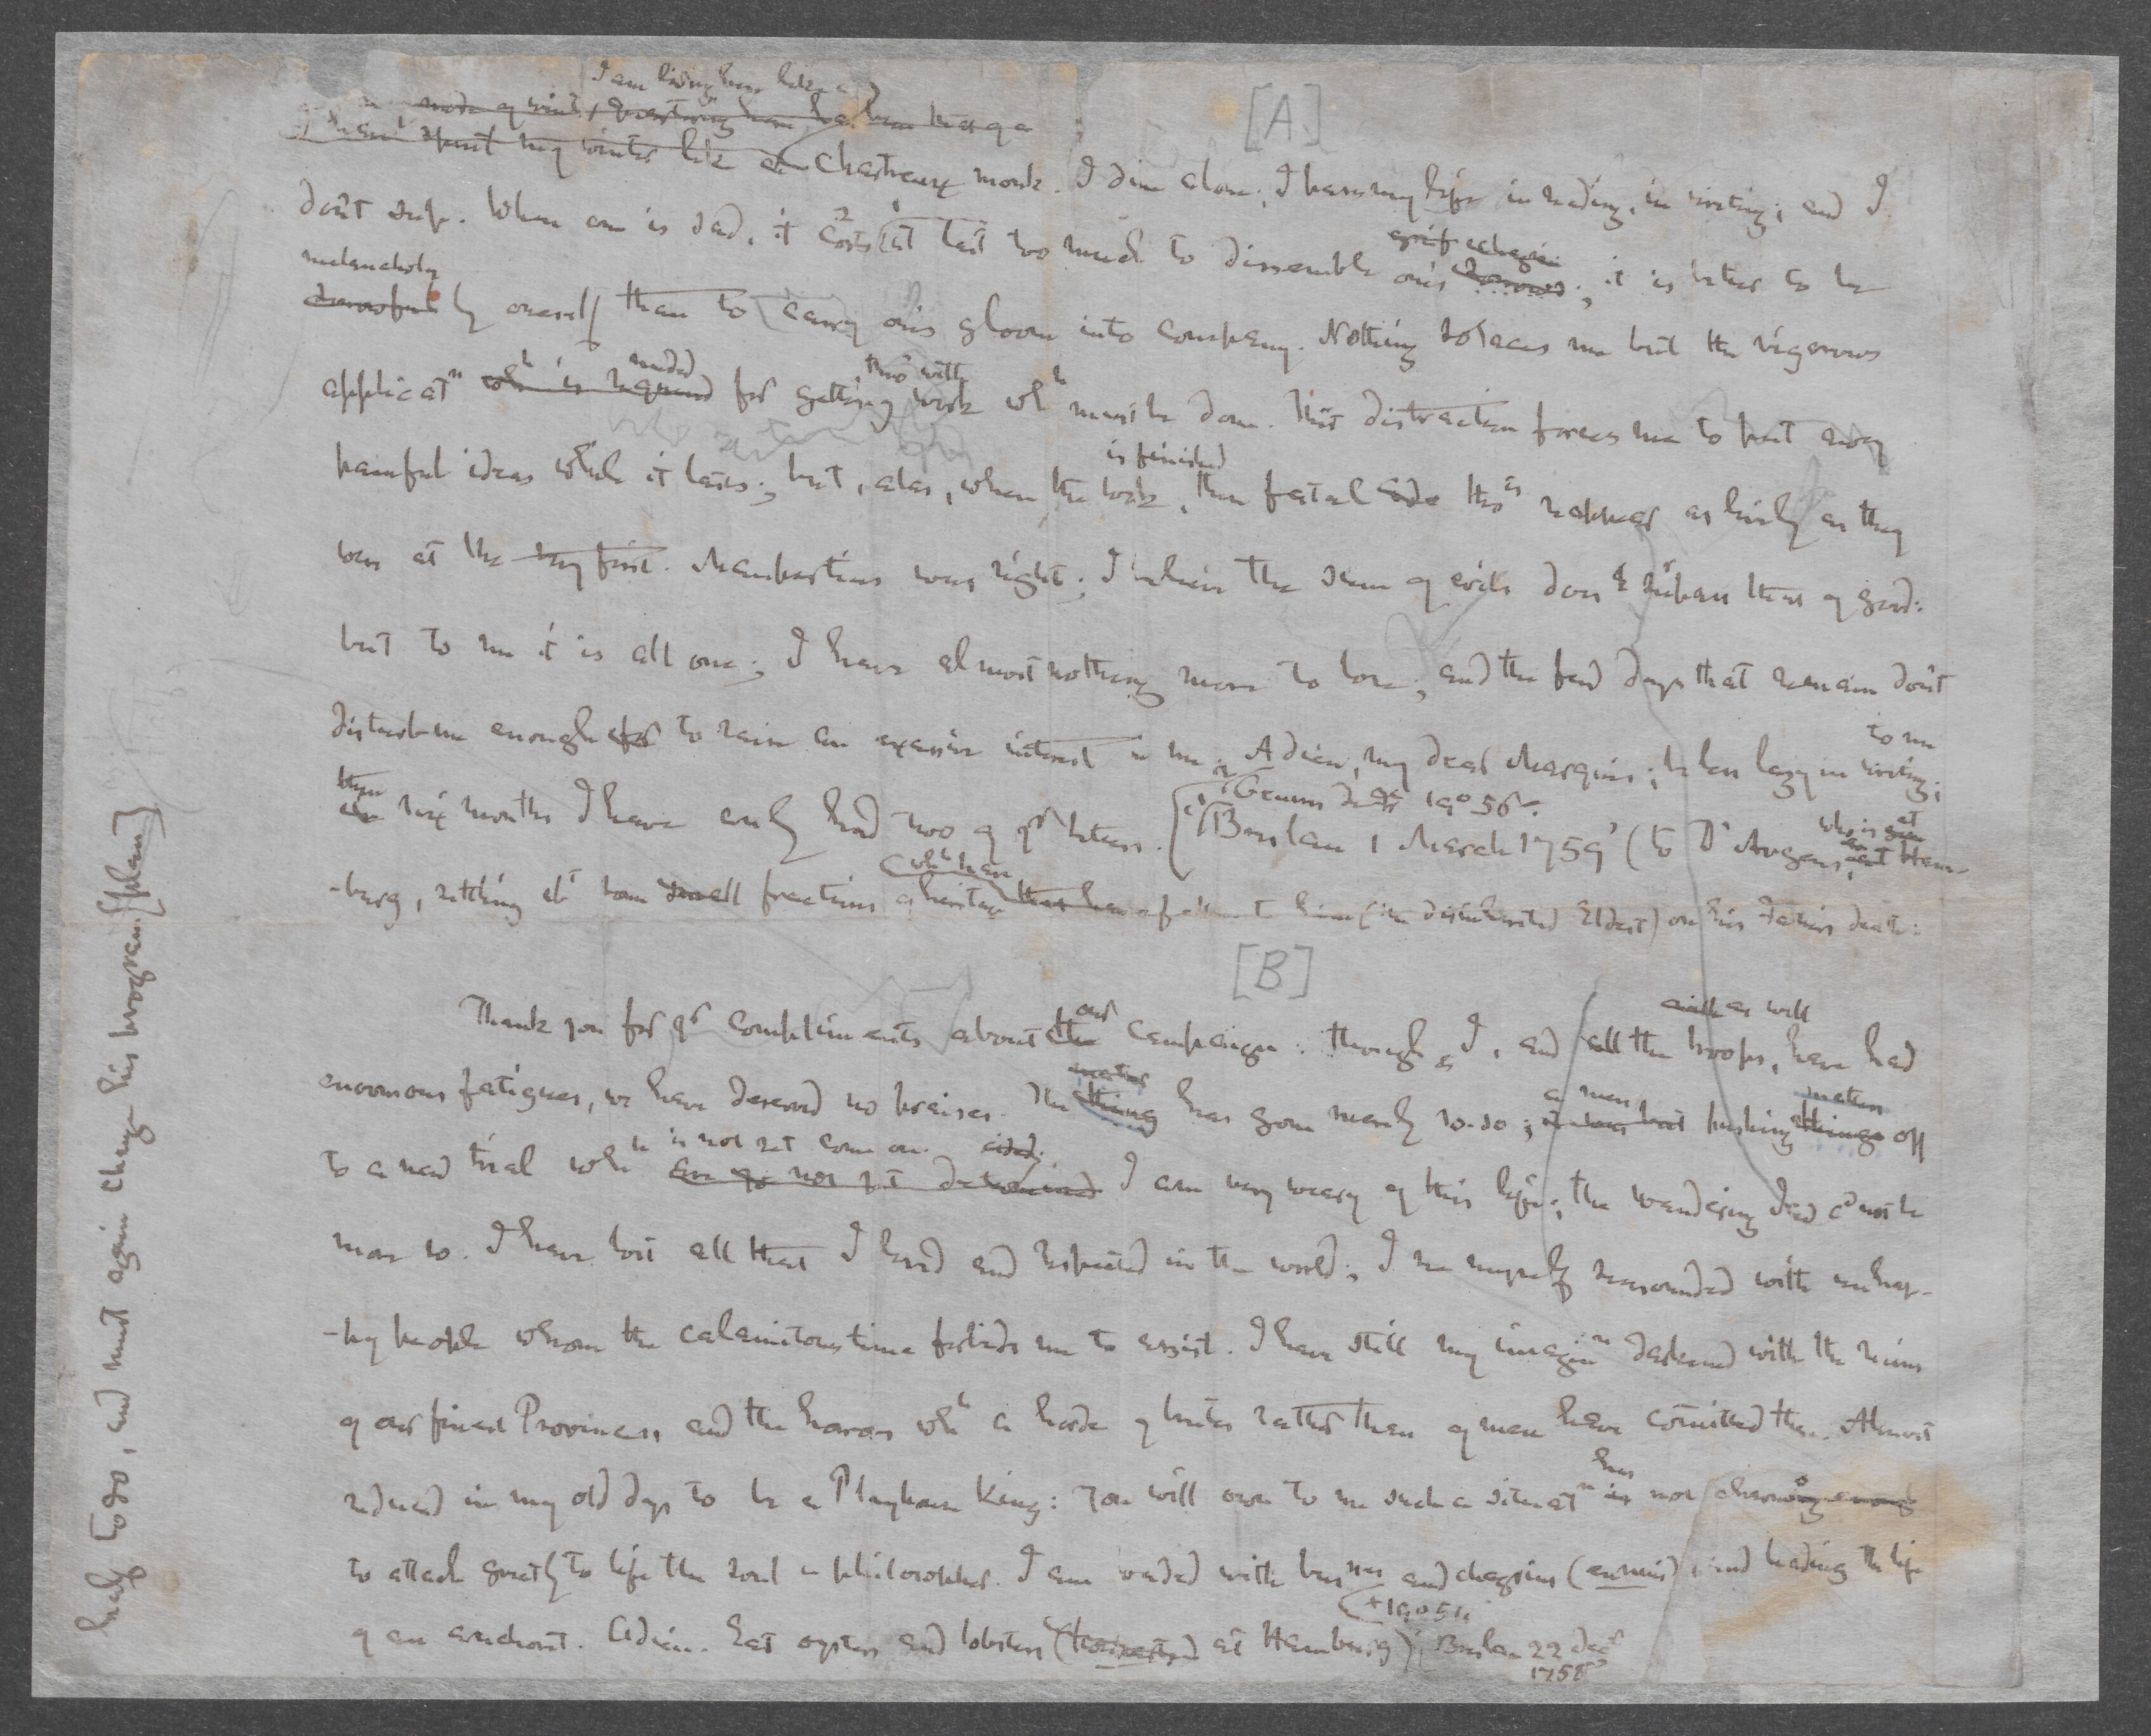 I am living here like a
[A]
spent my winter like a Chartreux monk. I dine alone; I pass my life in reading, in writing; and I
don't sup. When one is sad, it costs at last too much to dissemble one's grief chagrin sorrows; it is better to be
melancholy
sorrowful by oneself than to carry one's gloom into company. Nothing solaces me but the vigorous
needed thro' with
applicatn whh is required for getting work whh must be done. This distraction forces me to put away
is finished
painful ideas while it lasts; but, alas, when the work, then fatal ideas reappear as lively as they
were at the very first. Maupertuis was right; I believe the sum of evils does surpass that of good:
but to me it is all one; I have almost nothing more to lose; and the few days that remain don't
to me
disturb me enough to raise an excessive interest in me. Adieu, my dear Marquis; be less lazy in writing;
Œuvres de Fr. 19° 56
these six months I have only had two of yr letters. Breslau 1 March 1759 (to D'Argens, who is at Ham-
whh have
-burg, settling abt some small fractions of heritage that have fallen to him (the disinherited Eldest) on his Father's death:
[B]
our as well
Thank you for yr compliments about the campaign: though I, and all the troops, have had
matter a mere matters
enormous fatigues, we have deserved no praises. The thing has gone merely so-so; pushing things off
is not yet come on.
to a new trial whh I am very weary of this life; the wandering Jew cd not be
more so. I have lost all that I loved and respected in the world; I see myself surrounded with unhap-
-py people whom the calamitous time forbids me to assist. I have still my imaginn darkened with the ruins
of our finest Provinces, and the horrors whh a horde of brutes rather than of men have comitted there. Almost
has
reduced in my old days to be a Playhouse King: you will own to me such a situatn is not charms enough
to attach greatly to life the soul a philosopher. I am loaded with business and chagrins (ennuis), and leading the life
19° 54
of an anchorit. Adieu. Eat oysters and lobsters at Hamburg; Breslau 22 Decr
1758
ready to go, and must again change his program [plan]